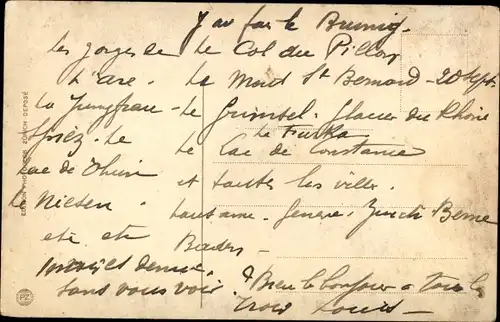 J'ai fait le Brunig.
les gorges de le Col du Pillon
l'Are. le Mont St Bernard - 20 Sept.
la Jungfrau - le Grimsel - Glacier du Rhône
Spiez. le la Furka
lac de Thun le Lac de Constance
le Niesen. et toutes les villes.
Lausanne. Genève. Zurich Berne
etc etc Baden -
sans vous voir. Bien le bonjour a tous les
trois Louis -
PZ